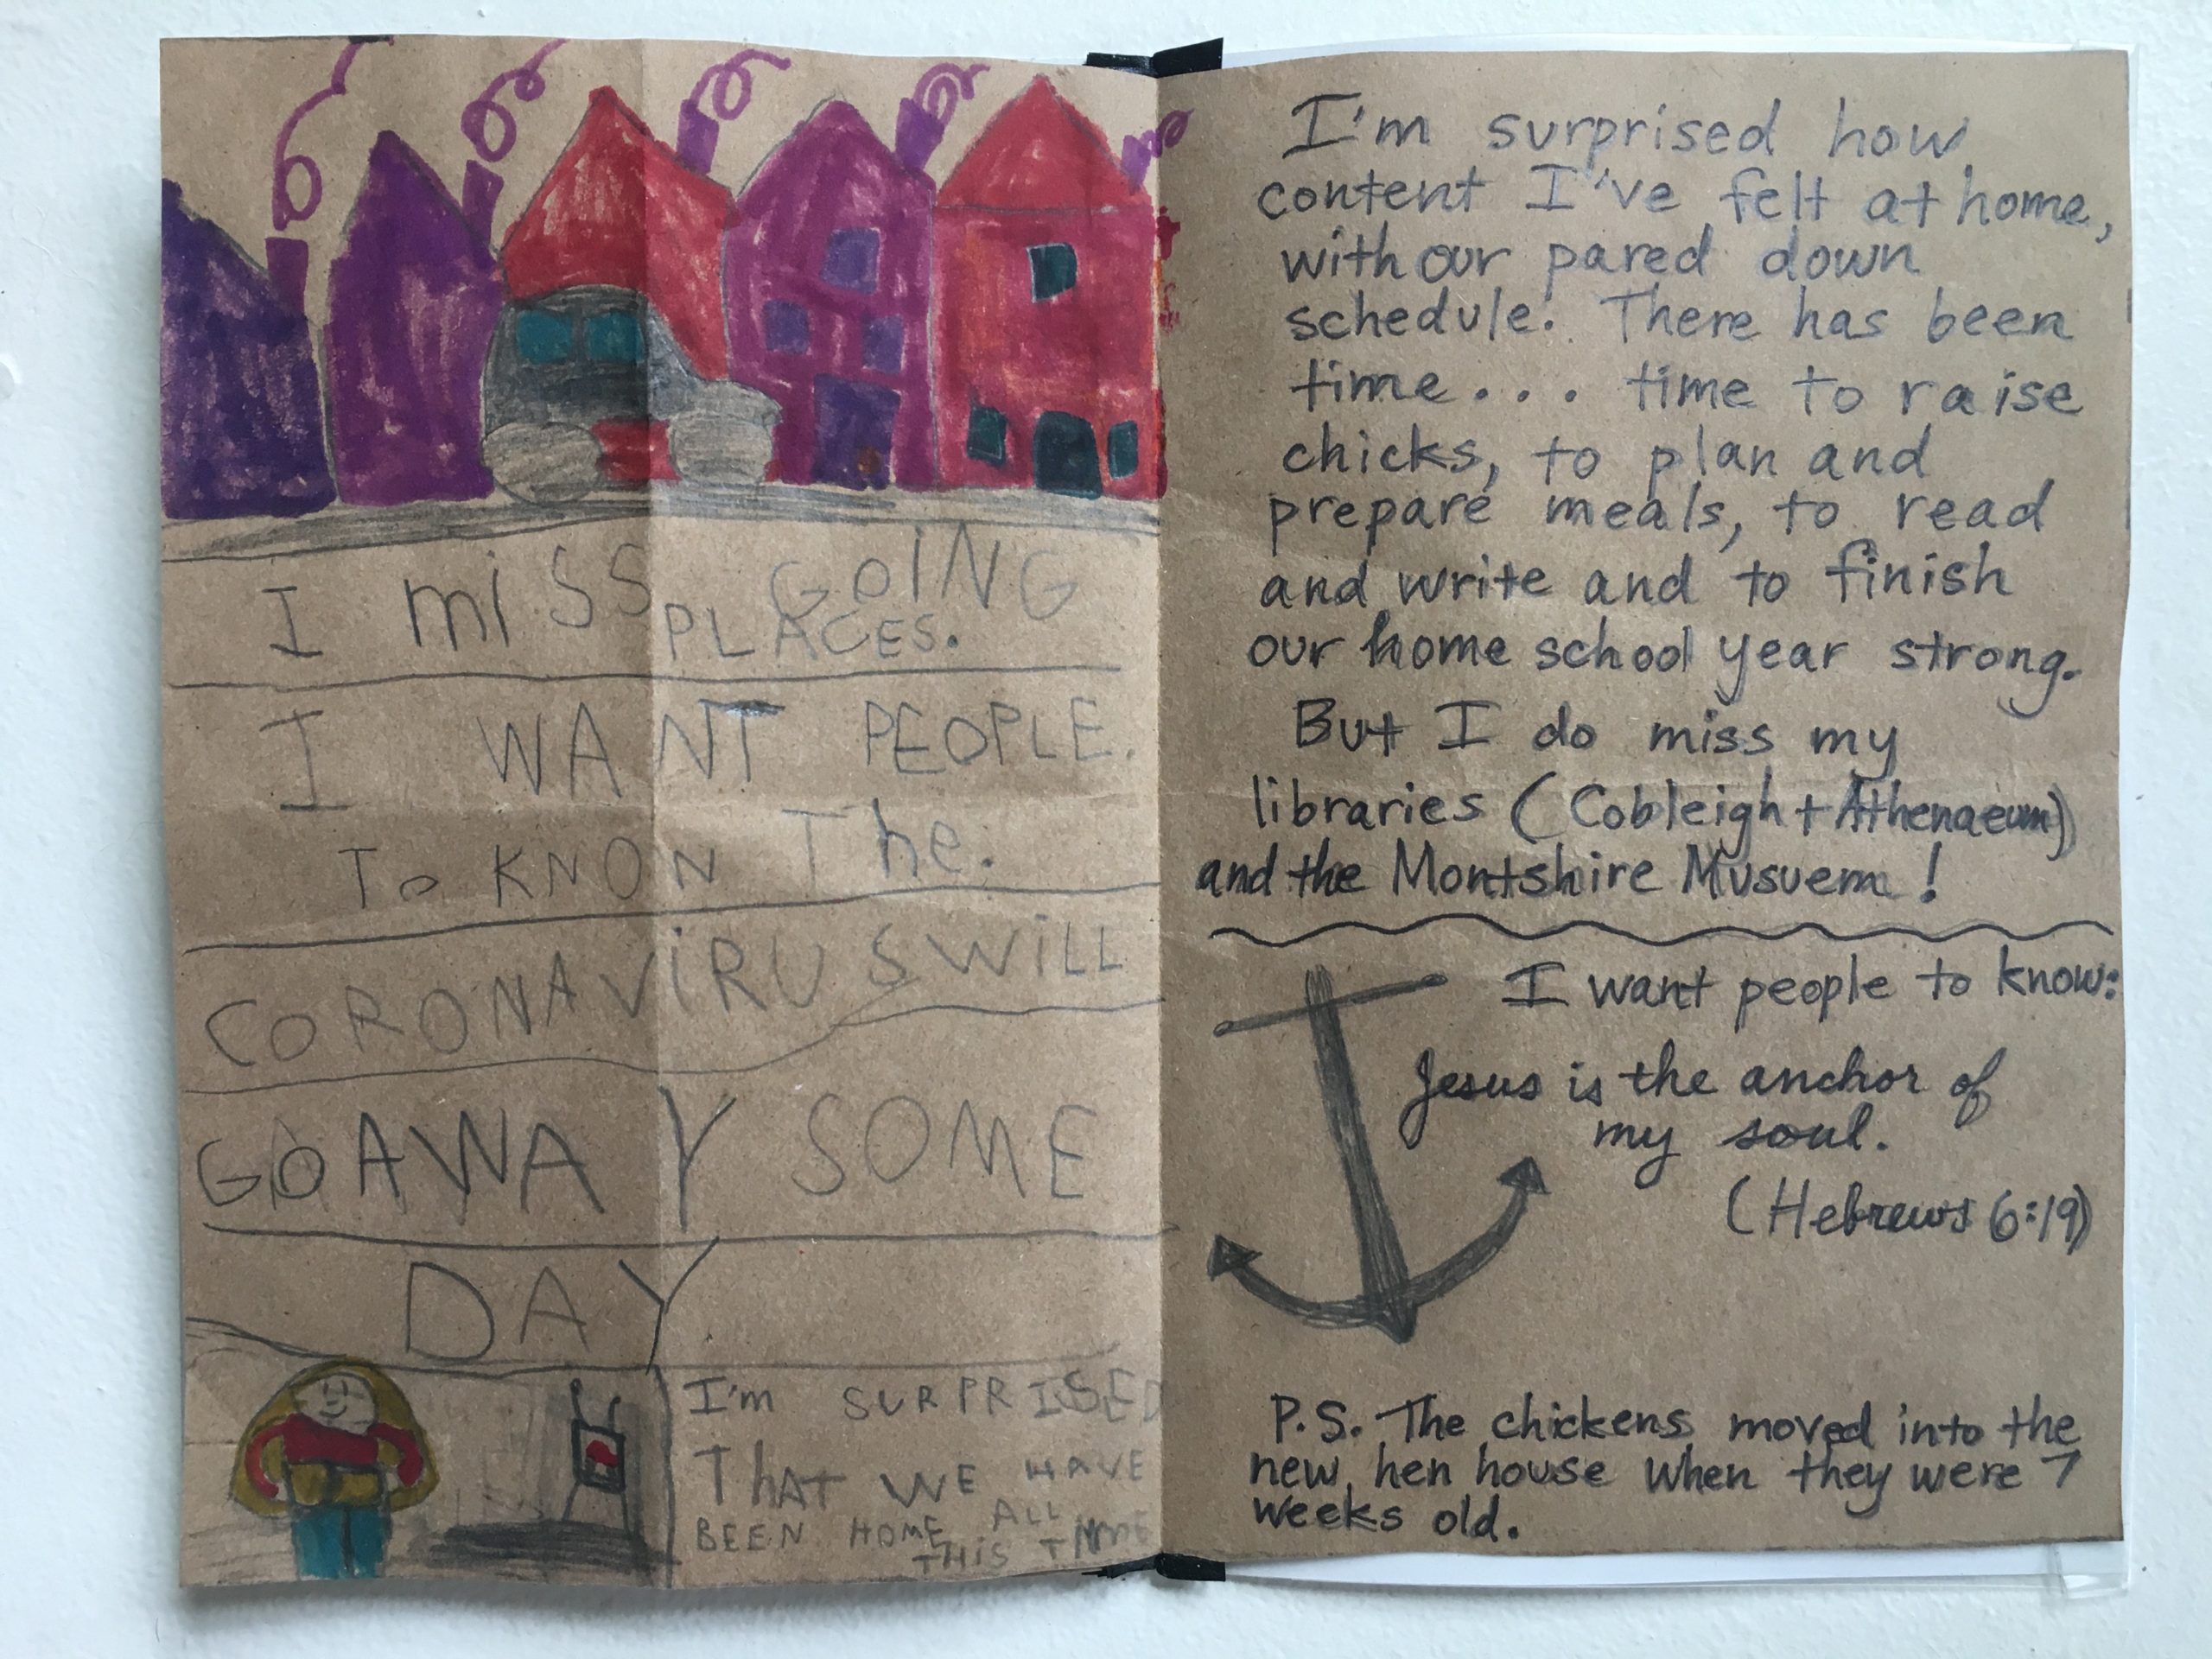 I miSS GOING
PLACES.
I WANT PEOPLE.
To KNON The.
CORONAViRUS WiLL
GO AWAY SOME
DAY
I'm SURPRISED
ThAT WE HAVE
BEEN HOME ALL
THiS TiME
I'm surprised how
content I've felt at home,
with our pared down
schedule. There has been
time... time to raise
chicks, to plan and
prepare meals, to read
and write and to finish
our home school year strong.
But I do miss my
libraries (Cobleigh + Athenaeum)
and the Montshire Musuem!
I want people to know:
Jesus is the anchor of
my soul.
(Hebrews 6:19)
P.S. The chickens moved into the
new hen house when they were 7
weeks old.